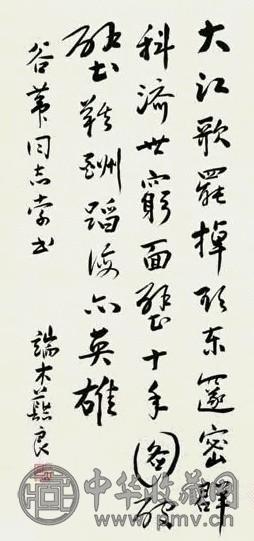 大江歌罷掉頭東邃密群
科濟世窮面壁十年图破
壁難酬蹈海亦英雄
谷葦同志书
端木蕻良
中华收藏网
www.pmv.cn